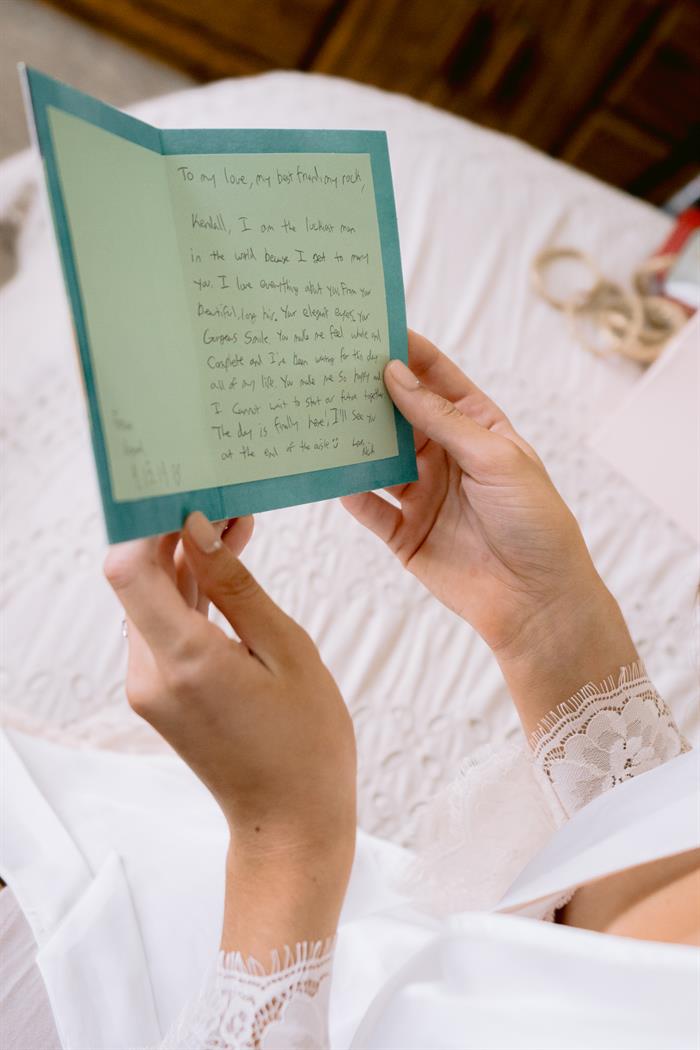 To my love, my best friend, my rock,
Kendall, I am the luckiest man
in the world because I get to marry
you. I love everything about you. From your
Beautiful, long hair, Your elegant eyes, Your
Gorgeous Smile. You make me feel whole and
Complete and I've been waiting for this day
all of my life. You make me so happy and
I Cannot wait to start our future together.
The day is finally here! I'll see you
at the end of the aisle :)